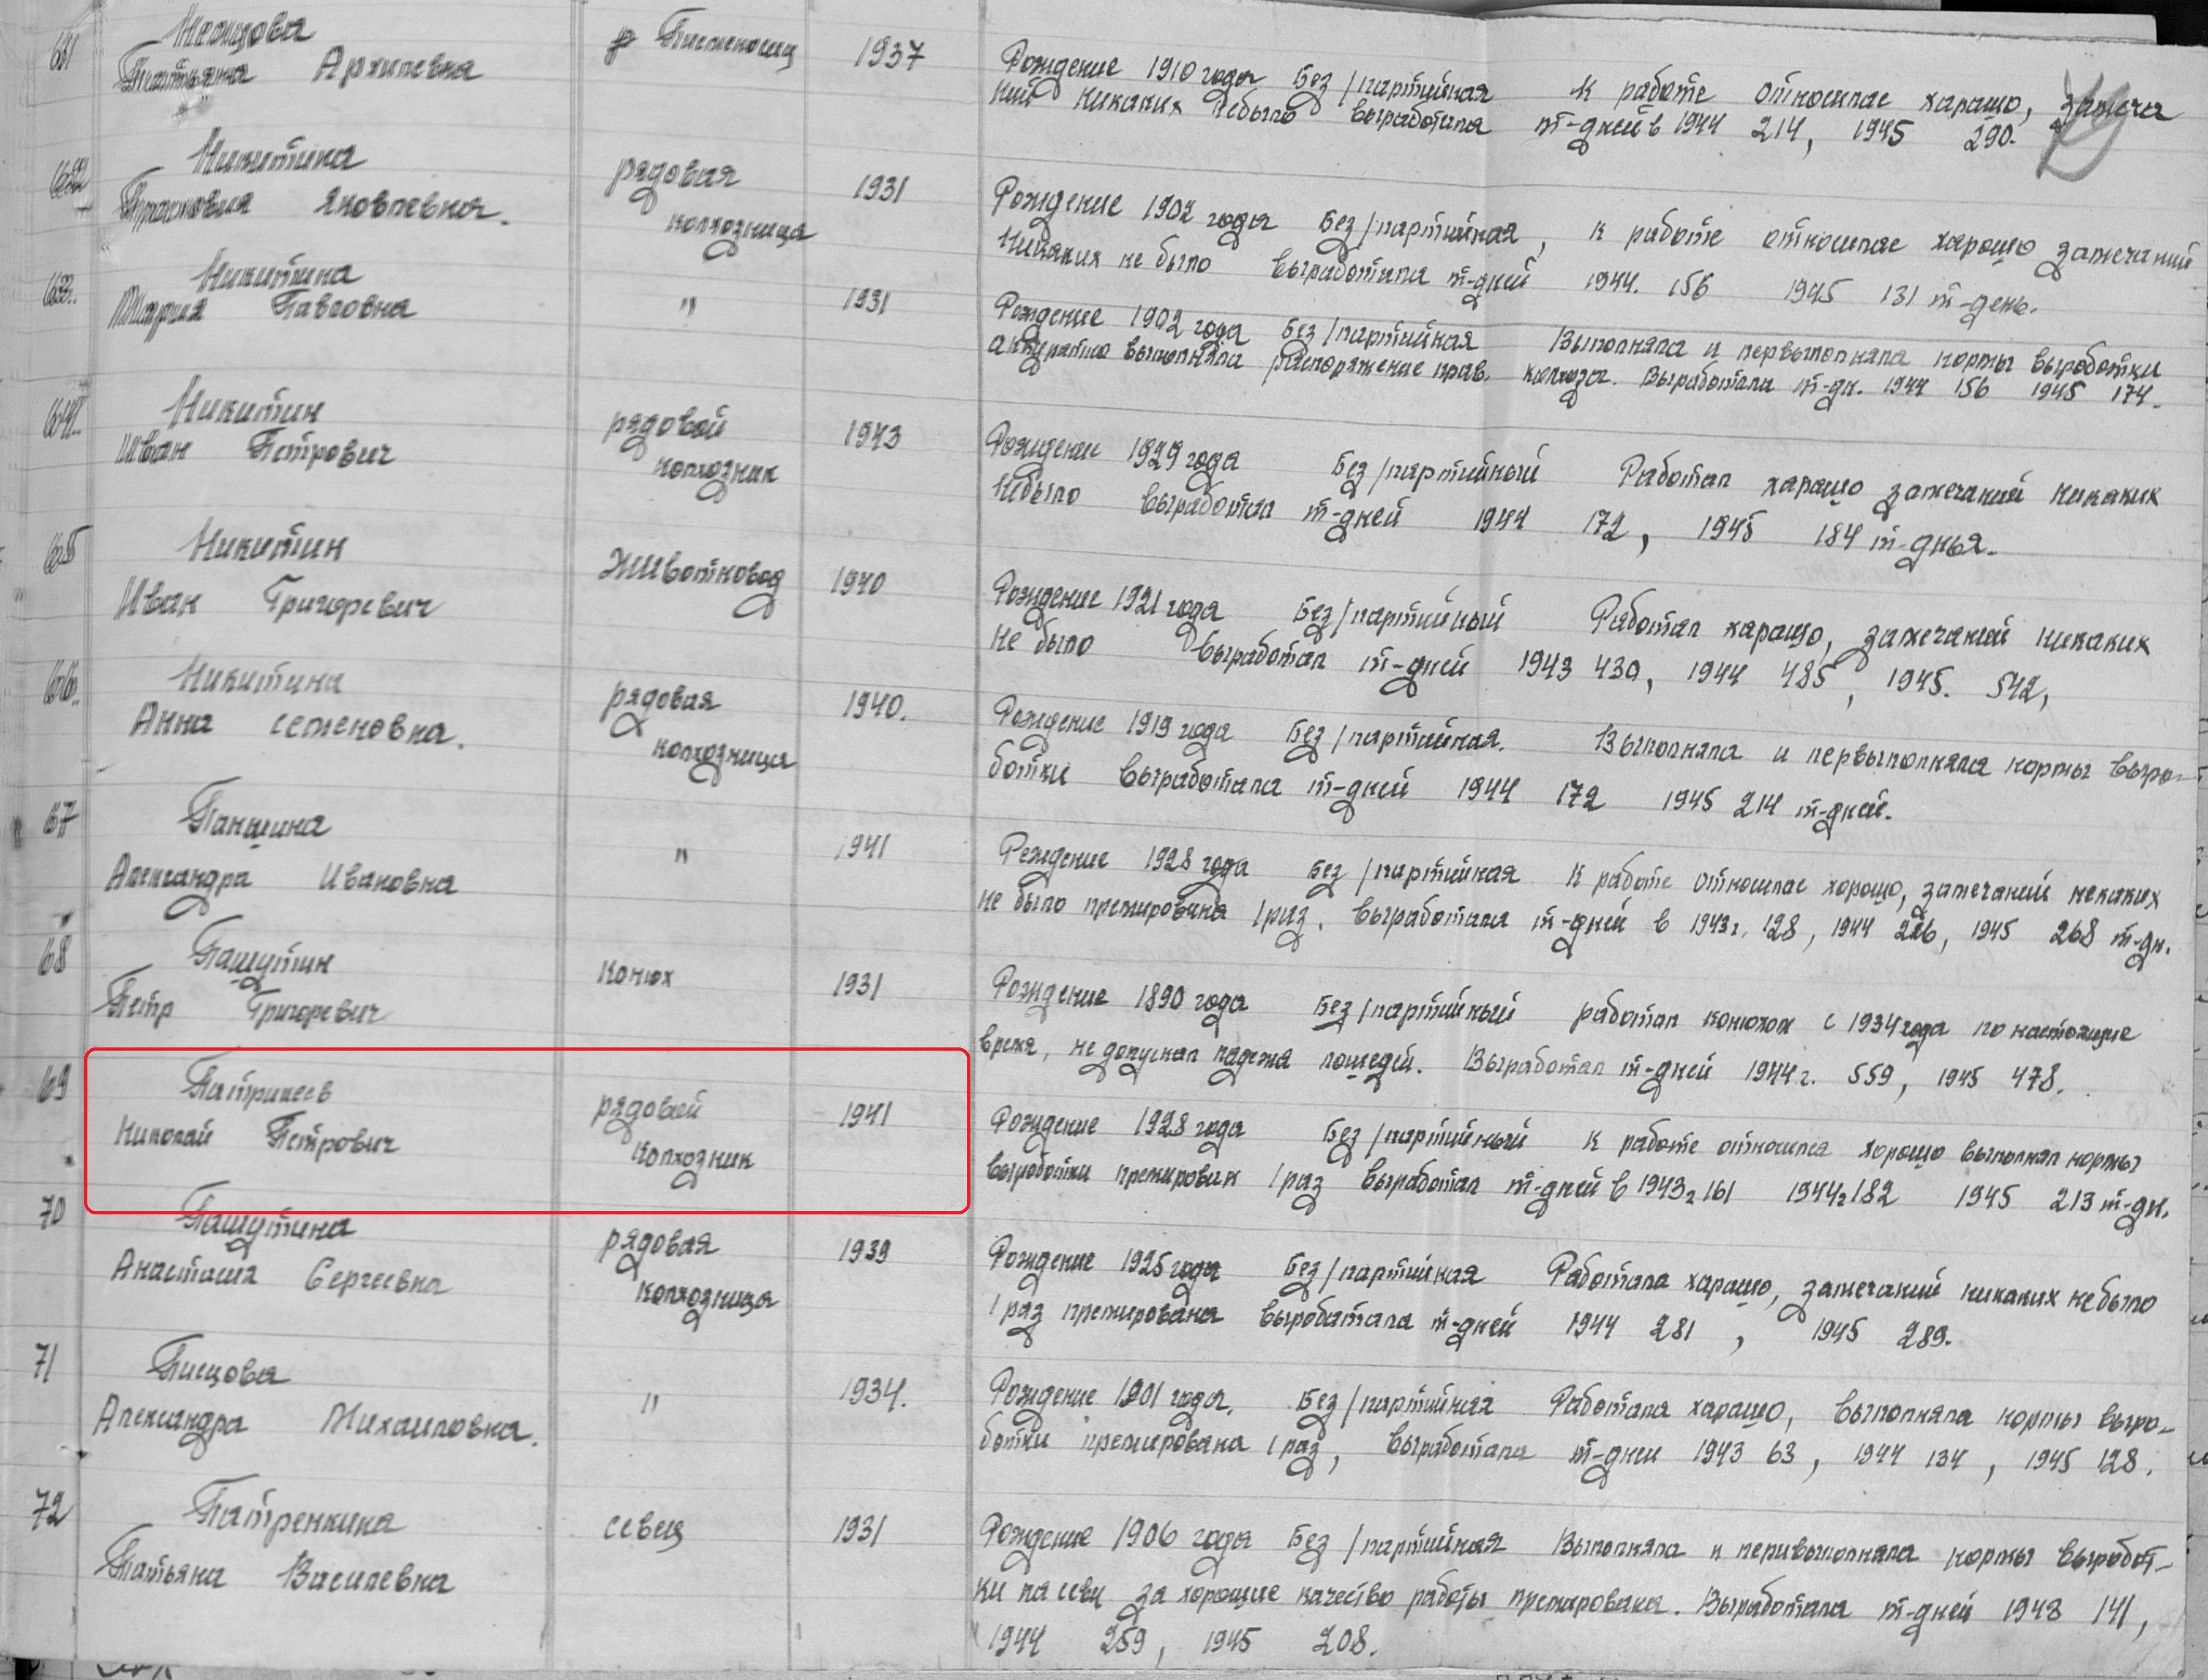 61 Немцова р Письмоносец 1937 Рождение 1910 года Без/партийная К работе относилас харашо, замеча
Татьяна Архиповна ний никаких небыло выработала т-дней в 1944 214, 1945 290.
62 Никитина рядовая 1931 Рождение 1902 года Без/партийная, к работе относилас харошо замечаний
Прасковия Яковлевна. колхозница никаких не было выработала т-дней 1944. 156 1945 131 т-день.
63. Никитина " 1931 Рождение 1902 года Без/партийная Выполняла и первыполняла нормы выроботки
Мария Павловна аккуратно выполняла распоряжение прав. колхоза. Выработала т-дн. 1944 156 1945 174.
64. Никитин рядовой 1943 Рождение 1929 года Без/партийный Работал харашо замечаний никаких
Иван Петрович колхозник небыло выработал т-дней 1944 172, 1945 184 т-дня.
65 Никитин Животновод 1940 Рождение 1921 года Без/партийный Работал харашо, замечаний никаких
Иван Григоревич не было Выработал т-дней 1943 430, 1944 485, 1945. 542,
66. Никитина рядовая 1940. Рождение 1919 года Без/партийная. Выполняла и первыполняла нормы выро-
Анна семеновна. колхозница ботки выработала т-дней 1944 172 1945 214 т-дней.
67 Паньшина " 1941 Рождение 1928 года Без/партийная К работе относилас хорошо, замечаний некаких
Александра Ивановна не было премирована 1 раз. выработала т-дней в 1943 г. 128, 1944 226, 1945 268 т-дн.
68 Пашутин Конюх 1931 Рождение 1890 года Без/партийный работал конюхом с 1934 года по настоящие
Петр Григоревич время, не допускал падежа лошедей. Выработал т-дней 1944 г. 559, 1945 478.
69 Патрикеев рядовой 1941 Рождение 1928 года Без/партийный к работе относился хорошо выполнял нормы
Николай Петрович Колхозник выроботки премирован 1 раз выработал т-дней в 1943 г 161 1944 г 182 1945 213 т-дн.
70 Пашутина рядовая 1939 Рождение 1925 года Без/партийная Работала харашо, замечаний никаких небыло
Анастасия Сергеевна колхозница 1 раз премирована выробатала т-дней 1944 281, 1945 289.
71 Писцова " 1934. Рождение 1901 года. Без/партийная Работала харашо, выполняла нормы выро-
Александра Михаиловна. ботки премирована 1 раз, выработала т-дней 1943 63, 1944 134, 1945 128.
72 Патренкина севец 1931 Рождение 1906 года Без/партийная Выполняла и перивыполняла нормы выробот-
Татьяна Василевна ки на севу за хорошие качество работы премирована. Выработала т-дней 1943 141,
1944 259, 1945 208.